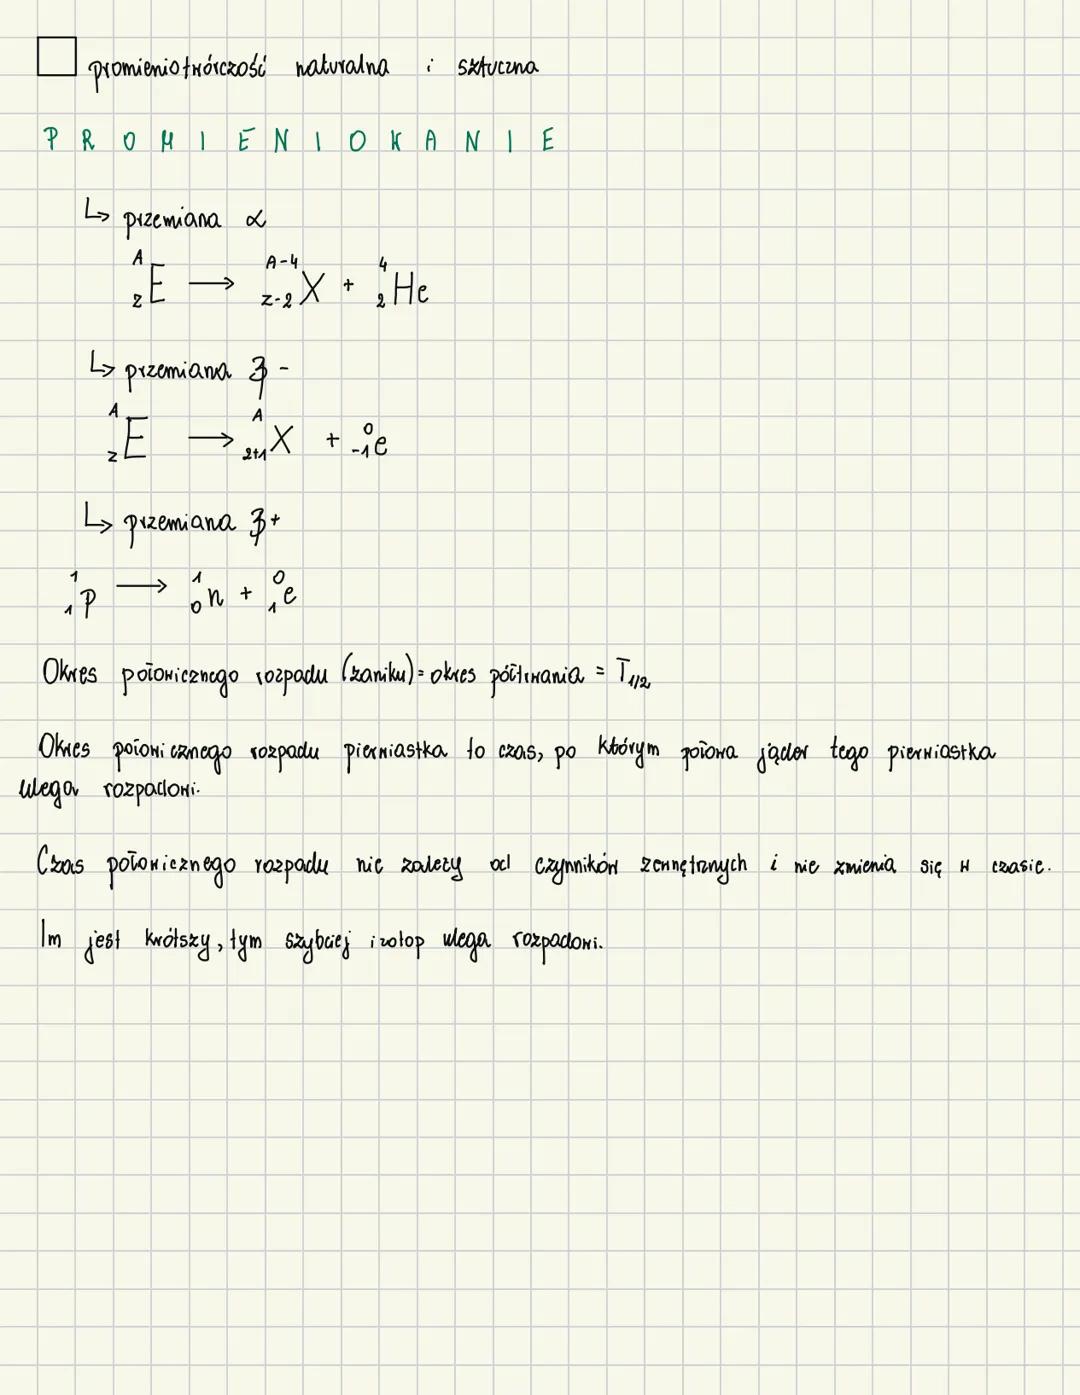 promieniotwórczość naturalna i sztuczna
PROMIENIOWANIE
↳ przemiana α
^A_Z E → ^{A-4}_{Z-2} X + ^4_2 He
↳ przemiana β -
^A_Z E → ^A_{Z+1} X + ^0_{-1} e
↳ przemiana β+
^1_1 p → ^1_0 n + ^0_1 e
Okres połowicznego rozpadu (zaniku) = okres półtrwania = T_{1/2}
Okres połowicznego rozpadu pierwiastka to czas, po którym połowa jąder tego pierwiastka
ulega rozpadowi.
Czas połowicznego rozpadu nie zależy od czynników zewnętrznych i nie zmienia się w czasie.
Im jest krótszy, tym szybciej izotop ulega rozpadowi.